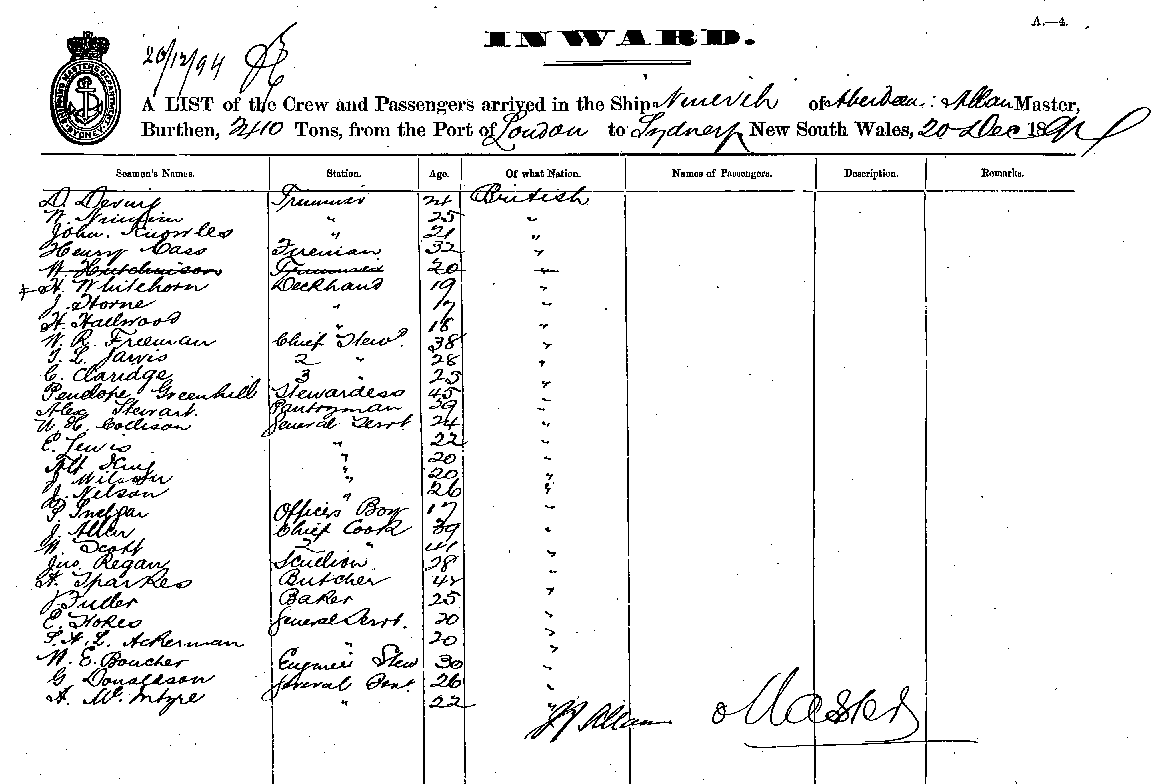 A.—4.
INWARD.
20/12/94
A LIST of the Crew and Passengers arrived in the Ship Ninevih of Aberdeen: Allan Master,
Burthen, Tons, from the Port of London to Sydney New South Wales, 20 Dec 1894
Seamen's Names. Station. Age. Of what Nation. Names of Passengers. Description. Remarks.
D. Trimmer 21 British
W. " 25 "
John Knowles " 21 "
Henry Cass Fireman 32 "
W. Hutchinson Trimmer 20 "
H. Whitehorn Deckhand 19 "
J. Horne " 17 "
H. Hallwood " 18 "
W. R. Freeman Chief Stewd. 38 "
T. L. Jarvis 2 " 28 "
C. Claridge 3 " 25 "
Penelope Greenhill Stewardess 45 "
Alex Stewart. Pantryman 29 "
W. H. Collison General Servt 24 "
E. Lewis " 22 "
Alf King " 20 "
J. Wilson " 20 "
J. Nelson " 26 "
P. Officers Boy 17 "
J. Allan Chief Cook 39 "
W. Scott 2 " 41 "
Jno. Regan Scullion 28 "
A. Sparkes Butcher 42 "
Butler Baker 25 "
E. Stokes General Servt. 20 "
S. H. L. Ackerman " 20 "
W. E. Boucher Engineers Stew 30 "
G. Donaldson General Servt. 26 "
A. McIntyre " 22 "
Allan Master